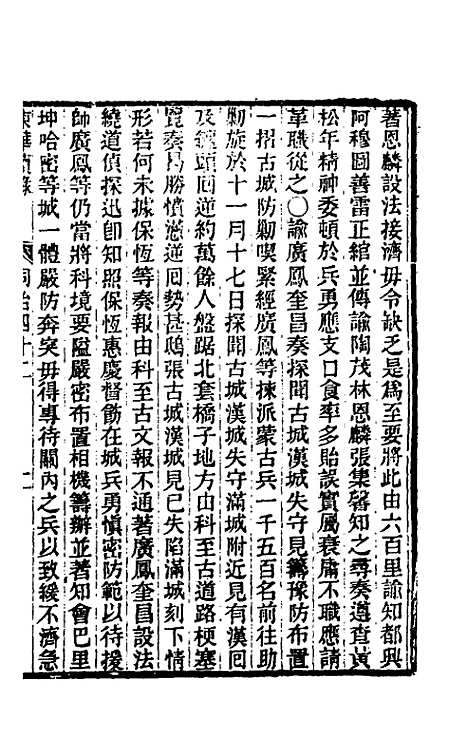 著恩麟設法接濟毋令缺乏是爲至要將此由六百里諭知都興
阿穆圖善雷正綰並傳諭陶茂林恩麟張集馨知之尋奏遵查黃
松年精神委頓於兵勇應支口食率多貽誤實屬衰庸不職應請
革職從之○諭廣鳳奎昌奏探聞古城漢城失守見籌豫防布置
一摺古城防勦喫緊經廣鳳等揀派蒙古兵一千五百名前往助
勦旋於十一月十七日探聞古城漢城失守滿城附近見有漢回
及纏頭回逆約萬餘人盤踞北套橋子地方由科至古道路梗塞
覽奏曷勝憤懣逆回勢甚鴟張古城漢城見已失陷滿城刻下情
形若何未據保恆等奏報由科至古文報不通著廣鳳奎昌設法
繞道偵探迅卽知照保恆惠慶督飭在城兵勇愼密防範以待援
師廣鳳等仍當將科境要隘嚴密布置相機籌辦並著知會巴里
坤哈密等城一體嚴防奔突毋得專待關內之兵以致緩不濟急
東華續錄 同治四十二 二